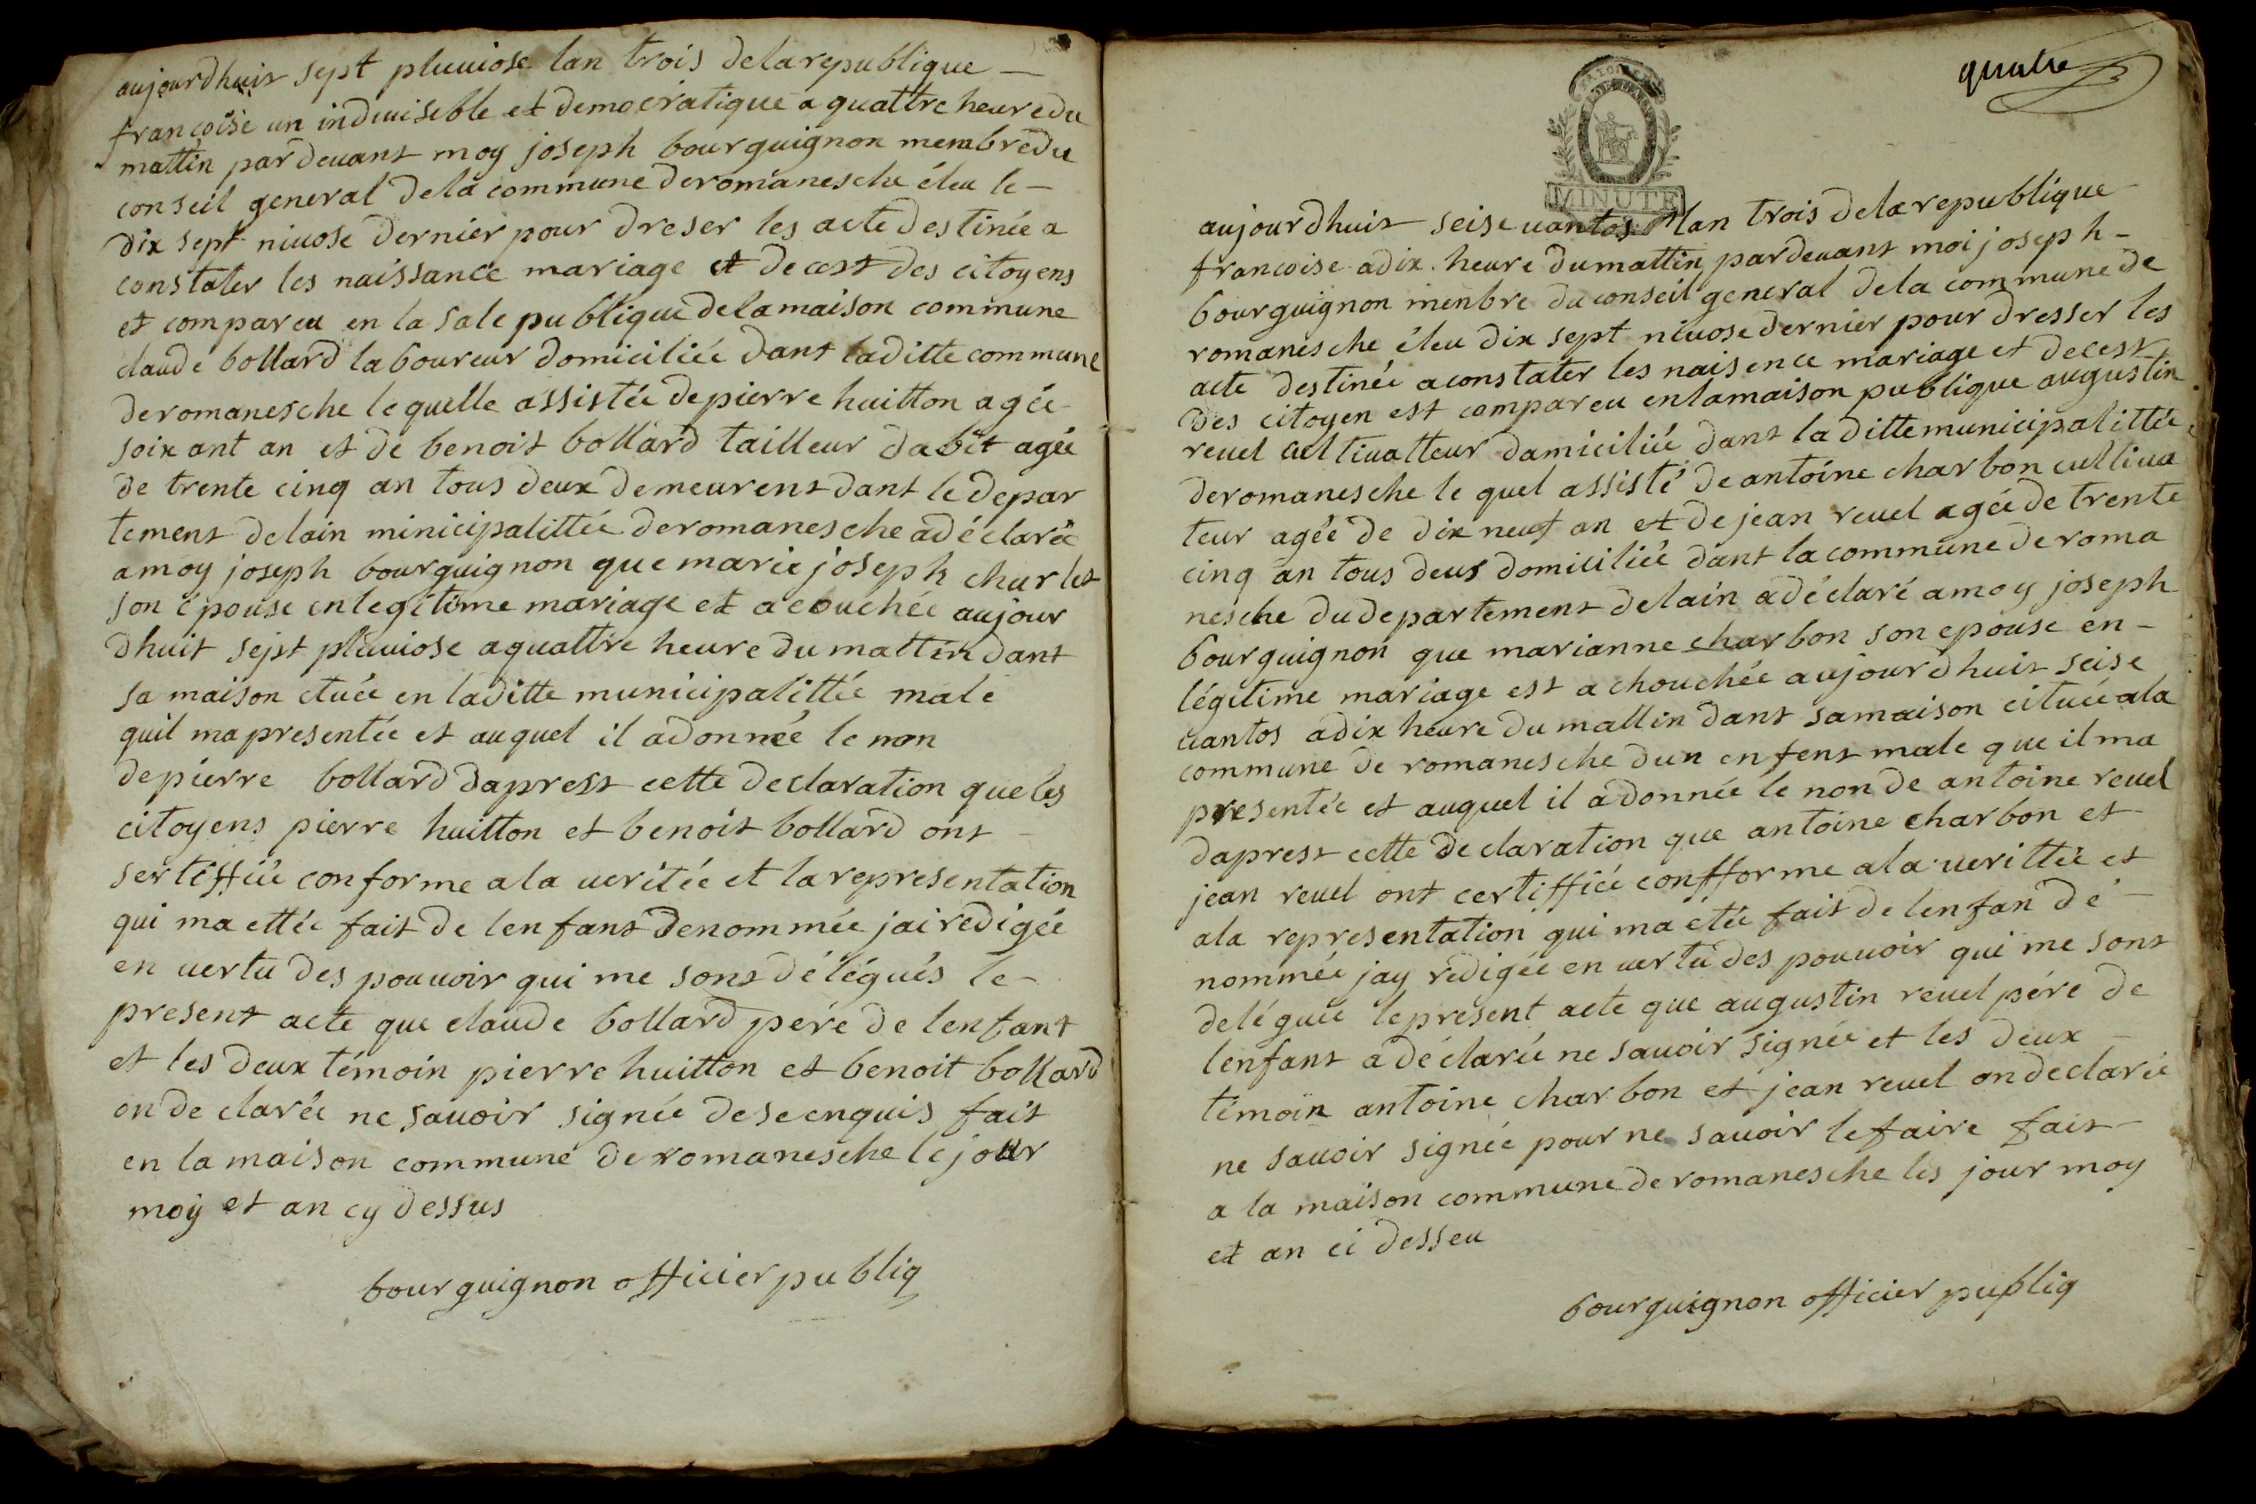 aujourdhuit sept pluuiose lan trois delarepublique —
francoise un indiuiseble et democratique a quattre heure du
mattin pardeuant moy joseph bourguignon membre du
conseil general dela commune deromanesche éleu le —
dix sept niuose dernier pour dreser les acte destinée a
constater les naissance mariage et decest des citoyens
et compareu en la sale publique delamaison commune
claude bollard laboureur domiciliée dant laditte commune
deromanesche lequelle assistée depierre huitton agée
soixant an et de benoit bollard tailleur dabit agée
de trente cinq an tous deux demeurent dant le depar
tement delain minicipalittée deromanesche adéclarée
amoy joseph bourguignon que marie joseph charlet
son épouse enlegitime mariage et acouchée aujour
dhuit sept pluuiose aquattre heure du mattin dant
sa maison ctuée en laditte municipalittée male
quil mapresentée et auquel il adonneé le non
depierre bollard daprest cette declaration que les
citoyens pierre huitton et benoit bollard ont
sertiffiée conforme ala ueritée et larepresentation
qui ma ettée fait de lenfant denommée jairedigée
en uertu des pouuoir qui me sont délégués le —
present acte que claude bollard pere de lenfant
et les deux témoin pierre huitton et benoit bollard
on declarée ne sauoir signée deseenquis fait
en la maison commune de romanesche le jour
moy et an cy dessus
bourguignon officier publiq
quatre
MINUTE
aujourdhuit seise uantos lan trois delarepublique
francoise adix heure dumattin pardeuant moi joseph —
bourguignon menbre du conseil general dela commune de
romanesche éleu dix sept niuose dernier pour dresser les
acte destinée aconstater les naisence mariage et decest
des citoyen est compareu enlamaison publique augustin
reuel cultiuatteur damiciliée dant la ditte municipalittée
deromanesche le quel assisté de antoine charbon cultiua
teur agée de dix neuf an et de jean reuel agée de trente
cinq an tous deus domiciliée dant la commune de roma
nesche du departement delain adéclaré amoy joseph
bourguignon que marianne charbon son epouse en —
légitime mariage est achouchée aujourdhuit seise
uantos adix heure du mattin dant samaison cituée ala
commune de romanesche dun enfent male que il ma
presentée et auquel il adonnée le non de antoine reuel
daprest cette declaration que antoine charbon et
jean reuel ont certiffiée confforme ala uerittée et
ala representation qui ma étée fait de lenfan dé
nommée jay redigée en uertu des pouuoir qui me sont
deléguée lepresent acte que augustin reuel pére de
lenfant adéclarée ne sauoir signée et les deux
témoin antoine charbon et jean reuel ondeclarée
ne sauoir signée pour ne sauoir lefaire fait —
a la maison commune deromanesche les jour moy
et an ci desseu
bourguignon officier publiq